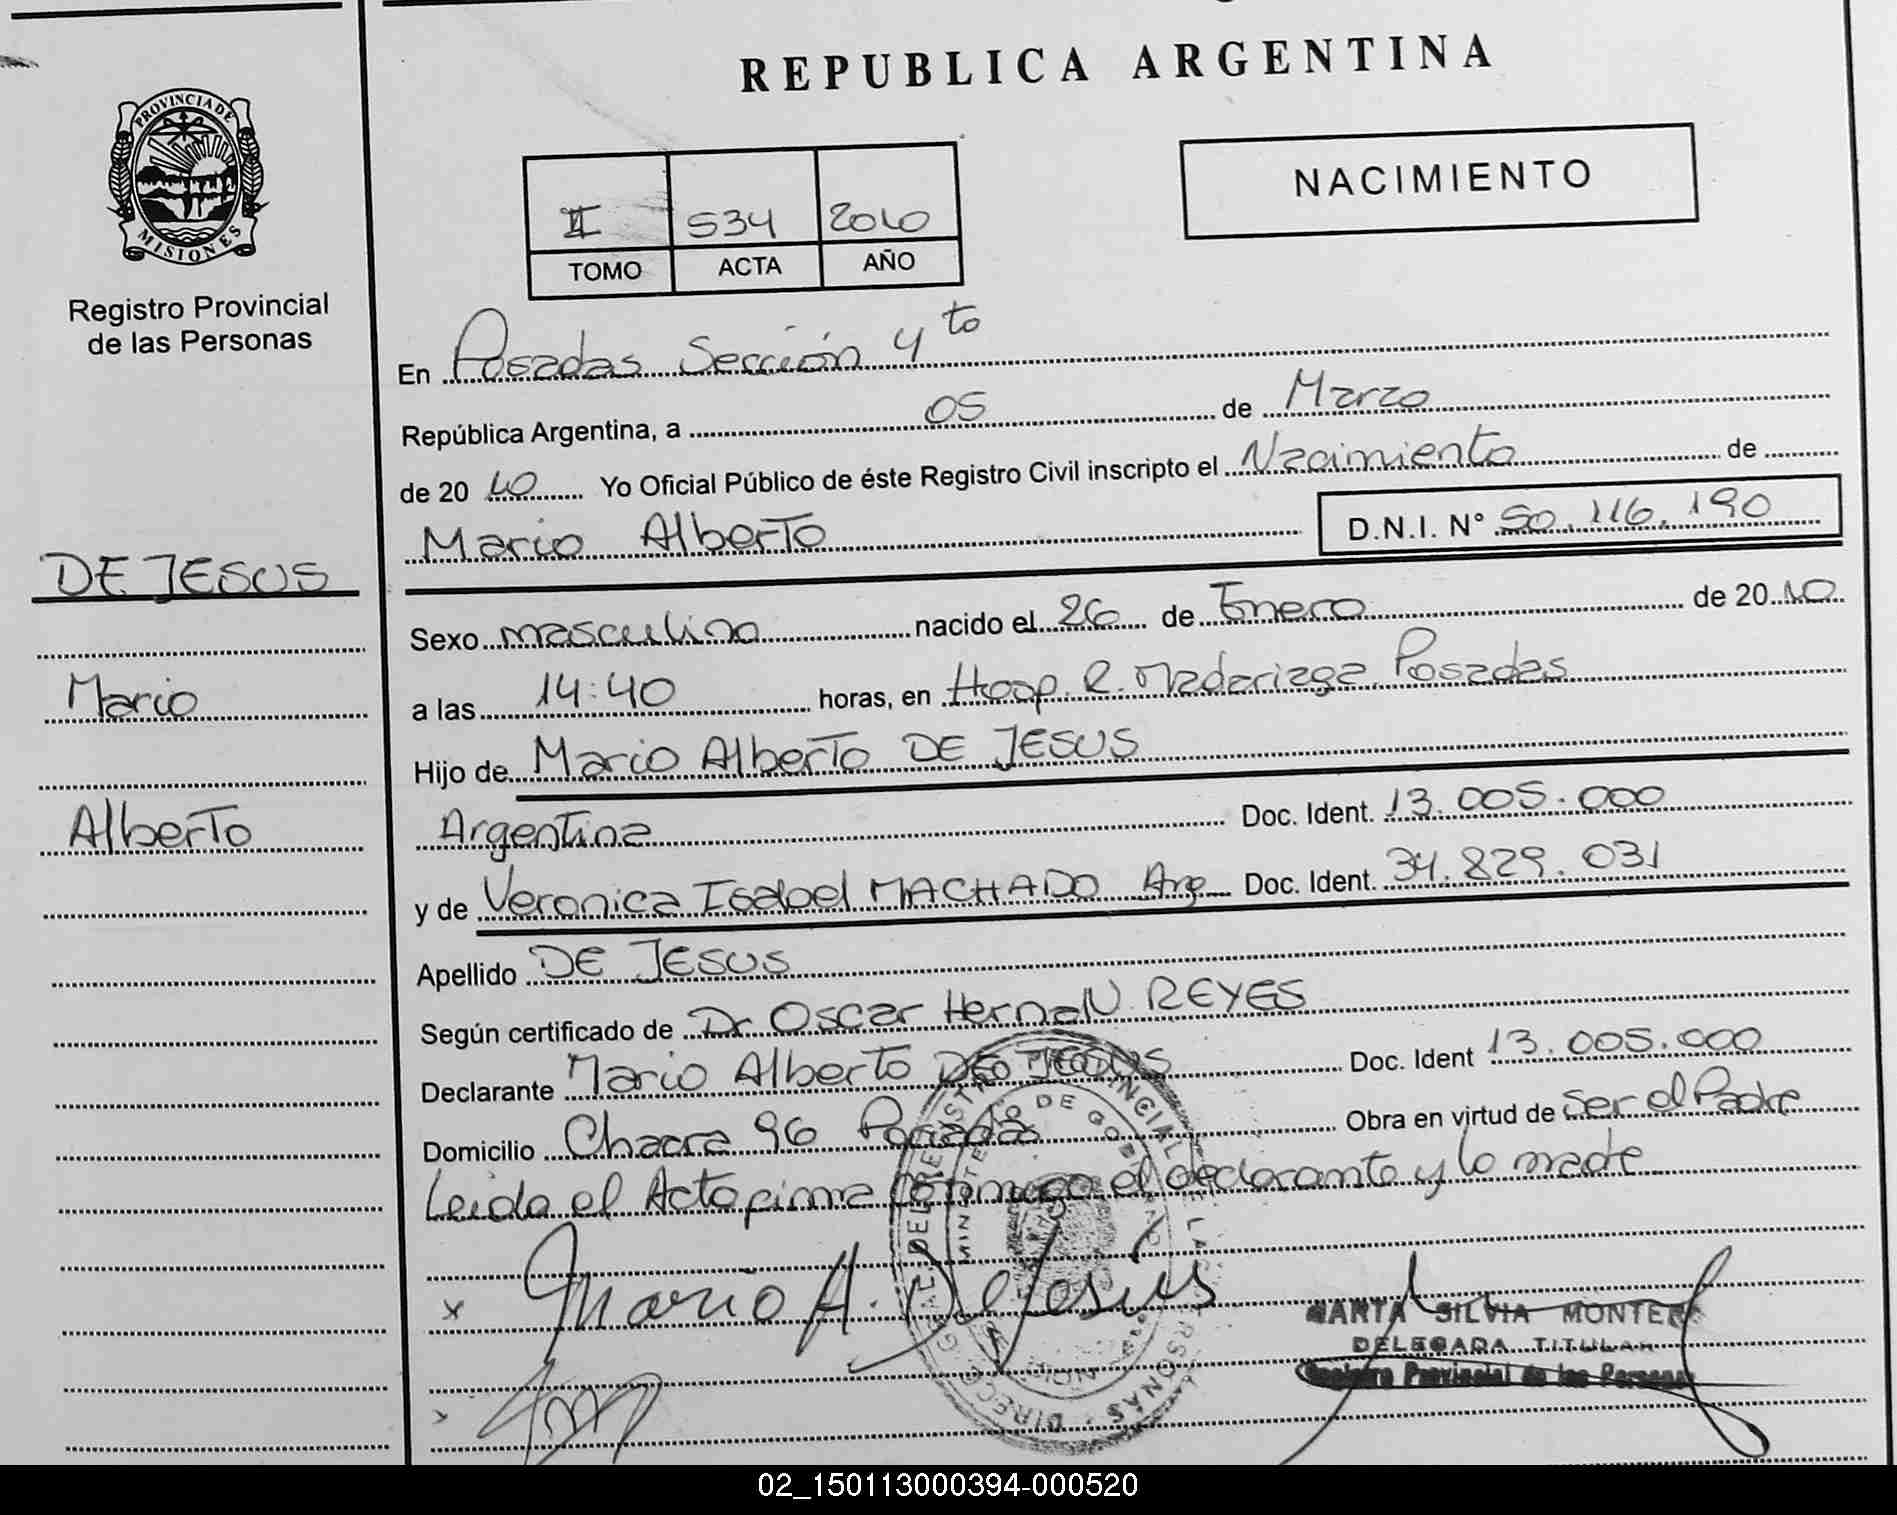 REPUBLICA ARGENTINA
PROVINCIA DE
MISIONES
Registro Provincial
de las Personas
NACIMIENTO
II 534 2010
TOMO ACTA AÑO
En Posadas Sección 4to
República Argentina, a 05 de Marzo
de 20 10 Yo Oficial Público de éste Registro Civil inscripto el Nacimiento de
Mario Alberto D.N.I. N° 50.116.190
DE JESUS
Mario
Alberto
Sexo masculino nacido el 26 de Enero de 20 10
a las 14:40 horas, en Hosp. R. Madariaga Posadas
Hijo de Mario Alberto DE JESUS
Argentina Doc. Ident. 13.005.000
y de Veronica Isabel MACHADO Arg Doc. Ident. 34.829.031
Apellido DE JESUS
Según certificado de Dr Oscar HernaN REYES
Declarante Mario Alberto DE JESUS Doc. Ident 13.005.000
Domicilio Chacra 96 Posadas Obra en virtud de ser el Padre
Leida el Acta firma conmigo el declarante y la madre
x Mario A. De Jesús
MARTA SILVIA MONTERO
DELEGADA TITULAR
Registro Provincial de las Personas
02_150113000394-000520